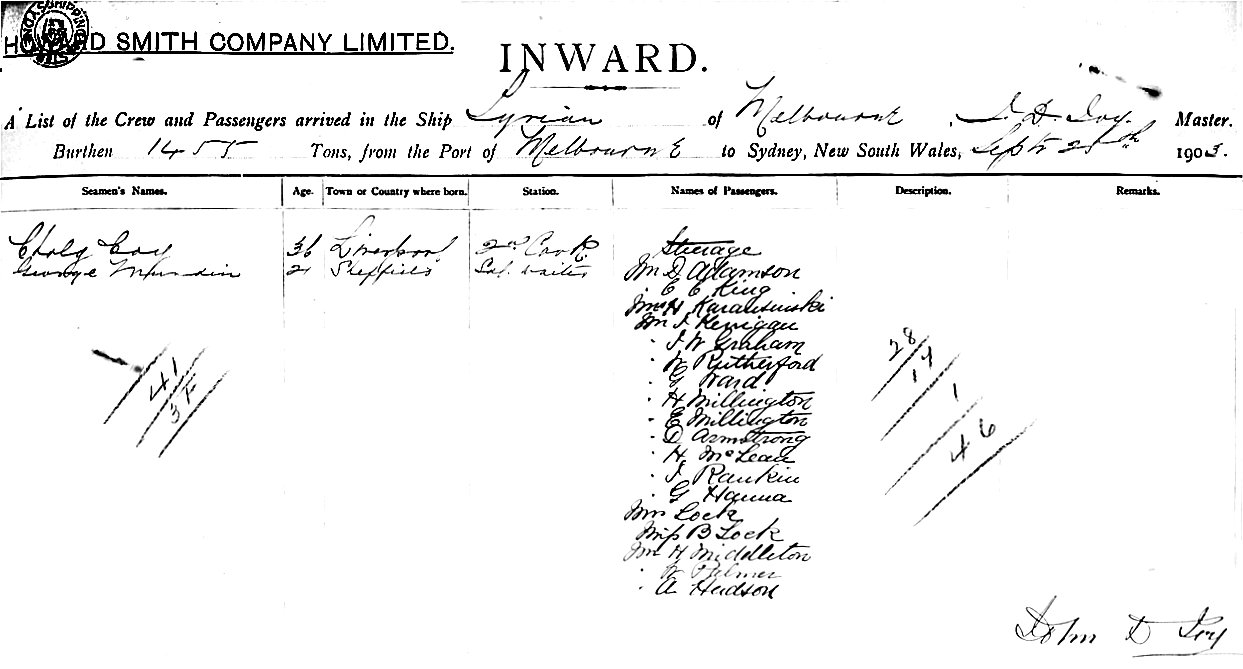 HOWARD SMITH COMPANY LIMITED.
INWARD.
A List of the Crew and Passengers arrived in the Ship Syrian of Melbourne, J. D. Joy. Master.
Burthen 1455 Tons, from the Port of Melbourne to Sydney, New South Wales, Sept 25th 1903.
Seamen's Names. Age. Town or Country where born. Station. Names of Passengers. Description. Remarks.
Steerage
36 Liverpool 2nd Cook
George 21 Sheffield Sal. waiter
Mr D Adamson
E C King
H
Mr J Kerrigan
" J W Graham
" W Rutherford
" G Ward
" H Millington
" E Millington
" D Armstrong
" H McLean
" J Rankin
" G Hanna
Mrs Lock
Miss B Lock
H Middleton
" W Palmer
" A Hudson
28
14
1
46
41
John D Joy